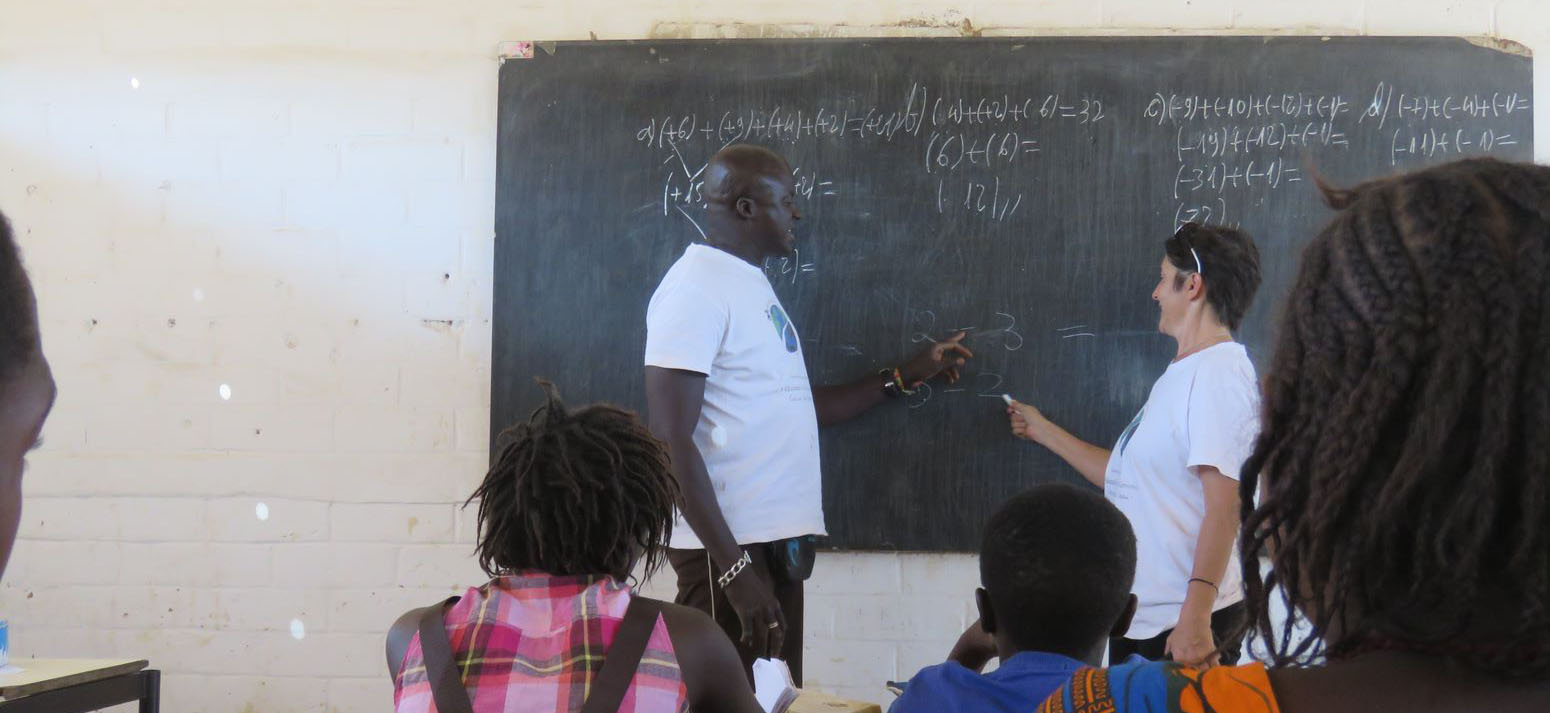 a) (+6) + (+9) + (+4) + (+2) = (+21)
(+15 +2) =
+2) =
b) (4) + (+2) + (6) = 32
(6) + (6) =
(12) ,,
c) (-9) + (-10) + (-12) + (-1) =
(-19) + (-12) + (-1) =
(-31) + (-1) =
d) (-7) + (-4) + (-1) =
(-11) + (-1) =
2 - 3 =
3 - 2